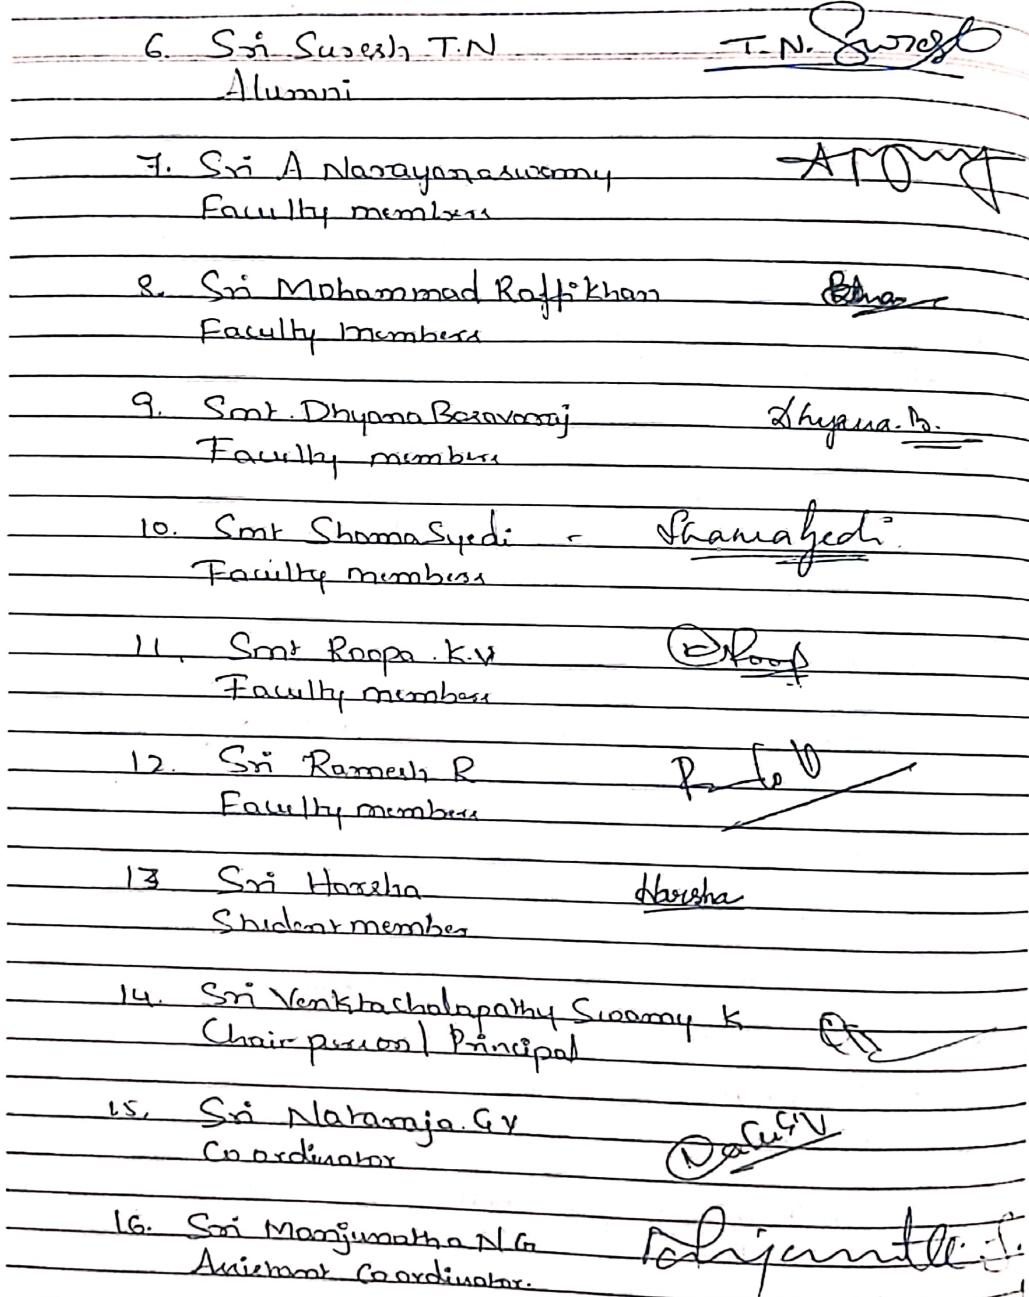 6. Sri Suresh T.N T.N. Suresh
Alumni
7. Sri A Narayanaswamy
Faculty members
8. Sri Mohammad Raffikhan
Faculty members
9. Smt. Dhyana Basavaraj Dhyana.B.
Faculty members
10. Smt Shama Syedi - Shamasyedi
Faculty members
11. Smt Roopa .K.V Roopa
Faculty members
12. Sri Ramesh R
Faculty members
13 Sri Harsha Harsha
Student member
14. Sri Venktachalapathy Swamy K
Chair person / Principal
15. Sri Nataraja.G V
Coordinator
16. Sri Manjunatha N G
Assistant Coordinator.